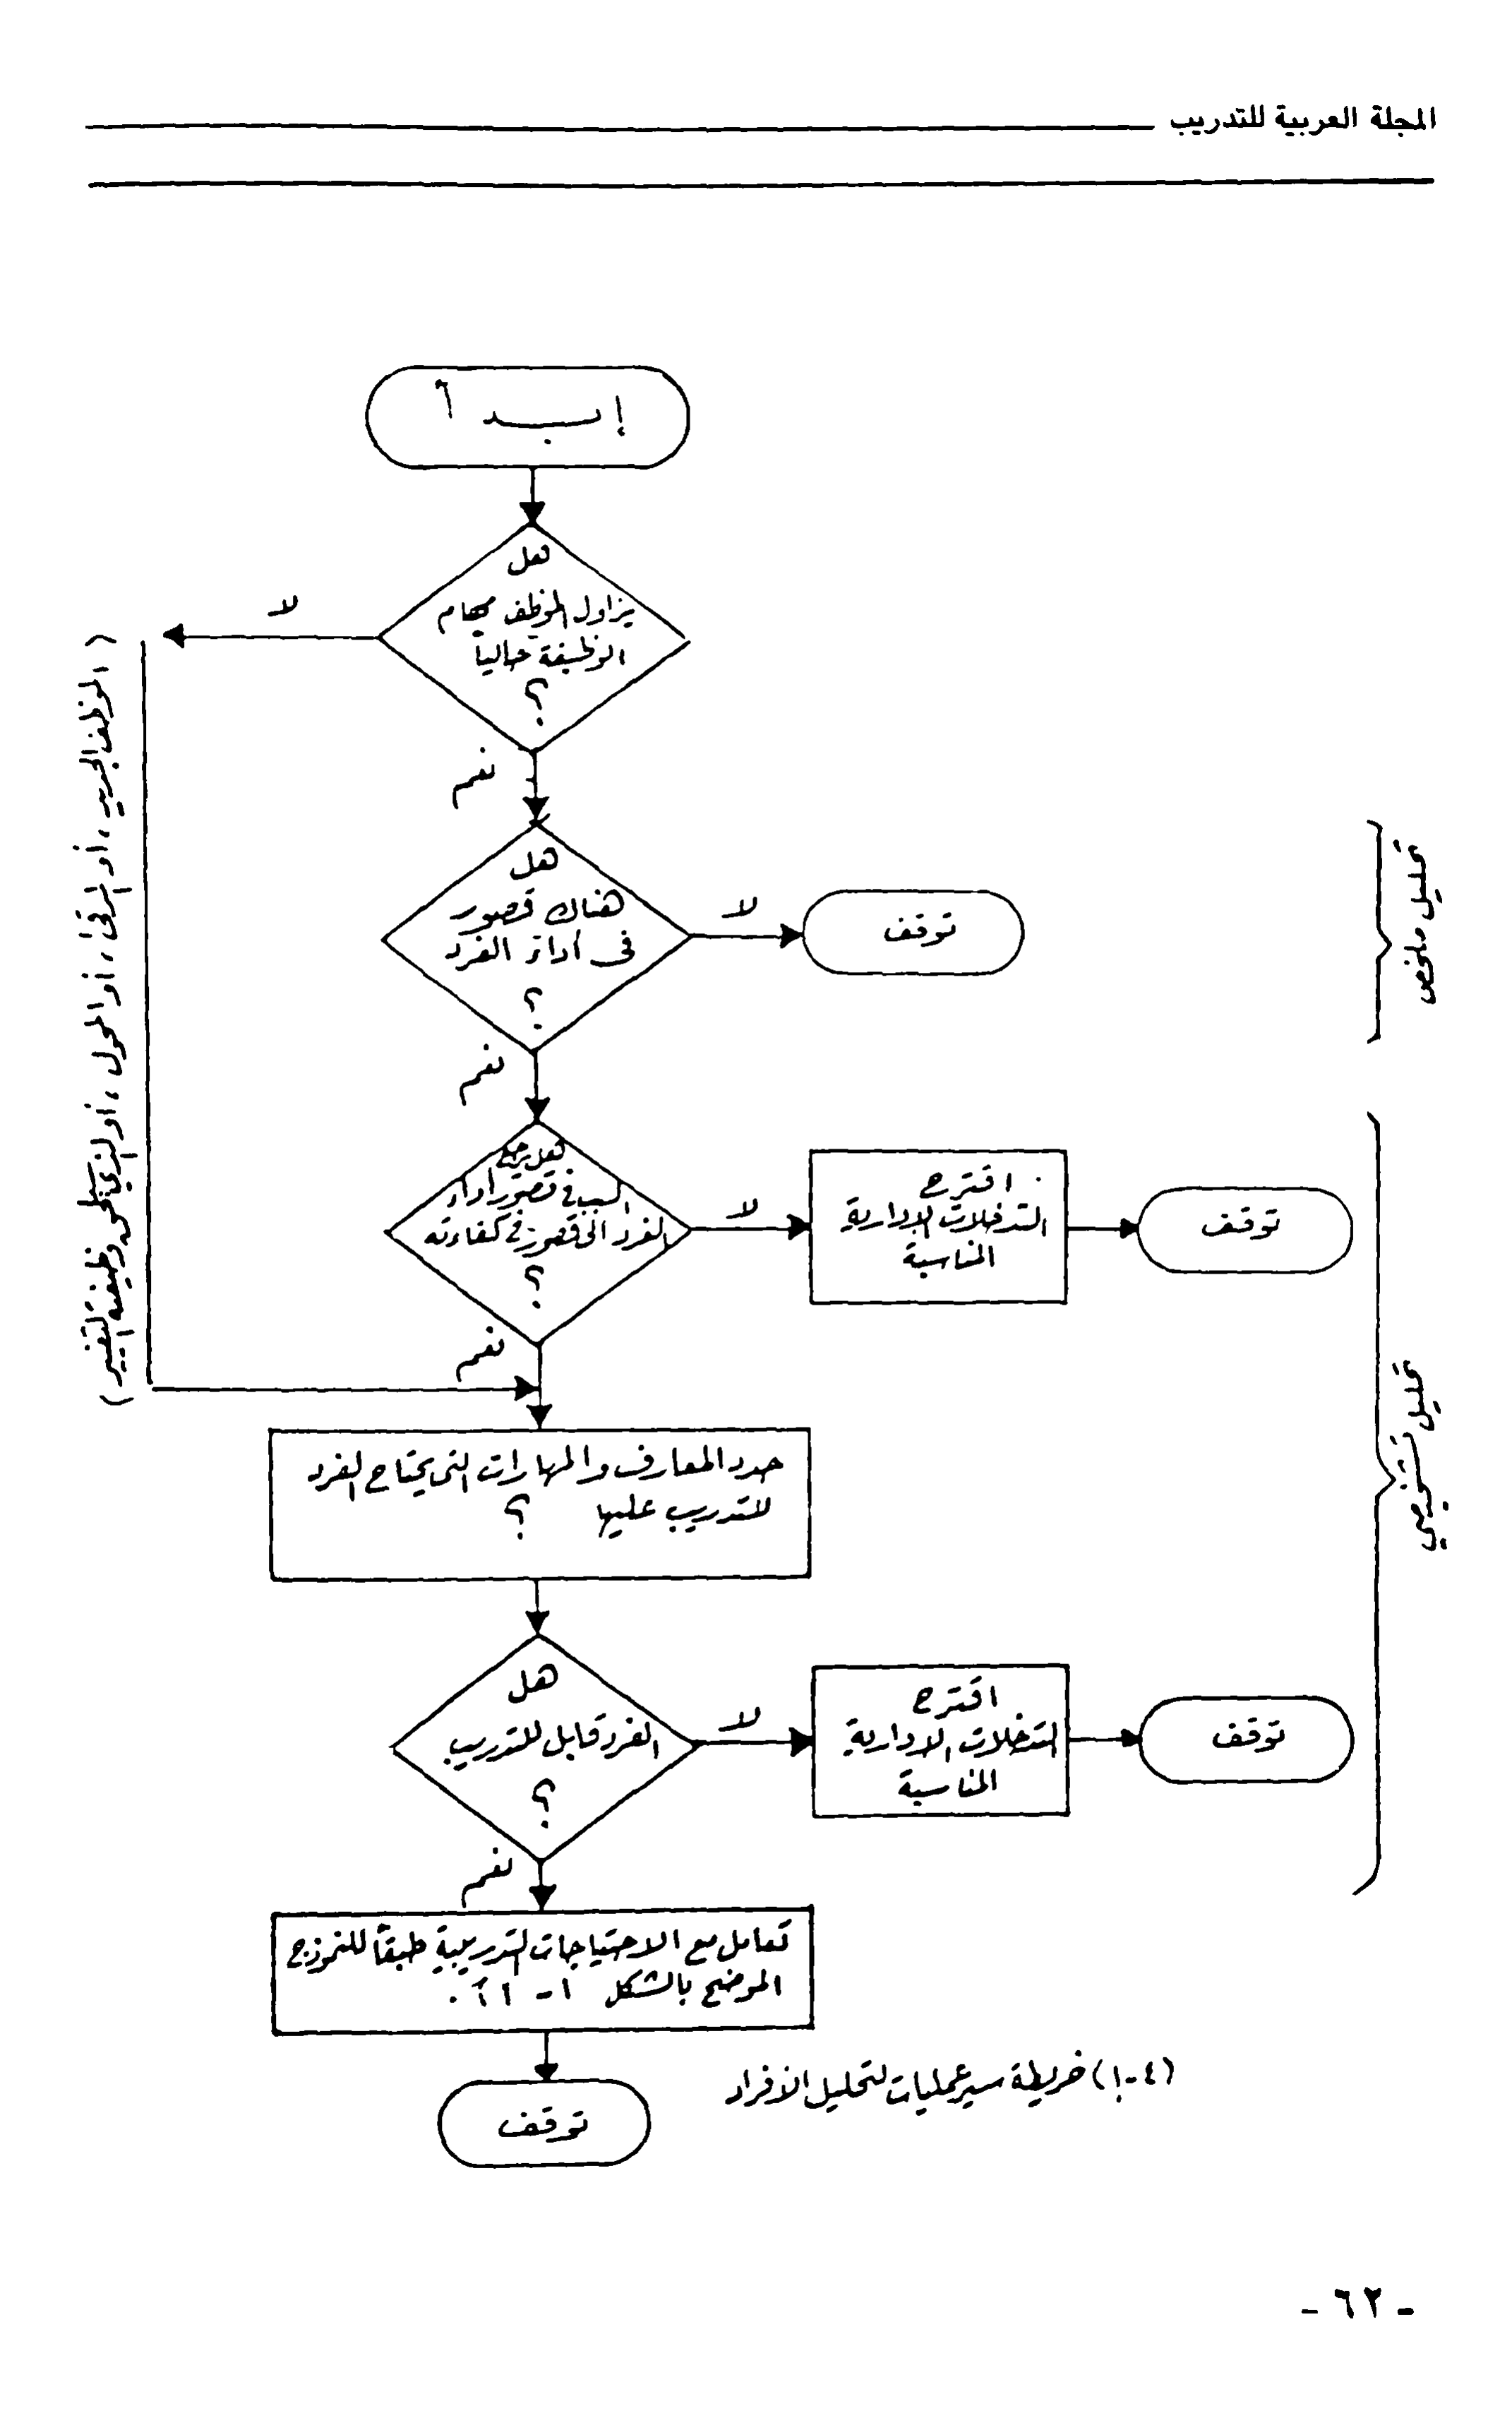 المجلة العربية للتدريب
إبدأ
هل
يزاول الموظف مهام
الوظيفة حالياً
؟
لا
(الموظف الجديد، أو المرقى، أو المحول، أو الذي وظيفته التغيير)
نعم
هل
هناك قصور
فى أداء الفرد
؟
لا
توقف
تحليل ملخص
نعم
هل يرجع
السبب في قصور أداء
الفرد الى قصور في كفاءته
؟
لا
اقترح
التدخلات الإدارية
المناسبة
توقف
تحليل تشخيصي
نعم
حدد المعارف والمهارات التى يحتاج الفرد
للتدريب عليها ؟
هل
الفرد قابل للتدريب
؟
لا
اقترح
التدخلات الادارية
المناسبة
توقف
نعم
تعامل مع الاحتياجات التدريبية طبقاً للنموذج
الموضح بالشكل
(٤-١) خريطة سير عمليات لتحليل الافراد
توقف
- ٦٢ -